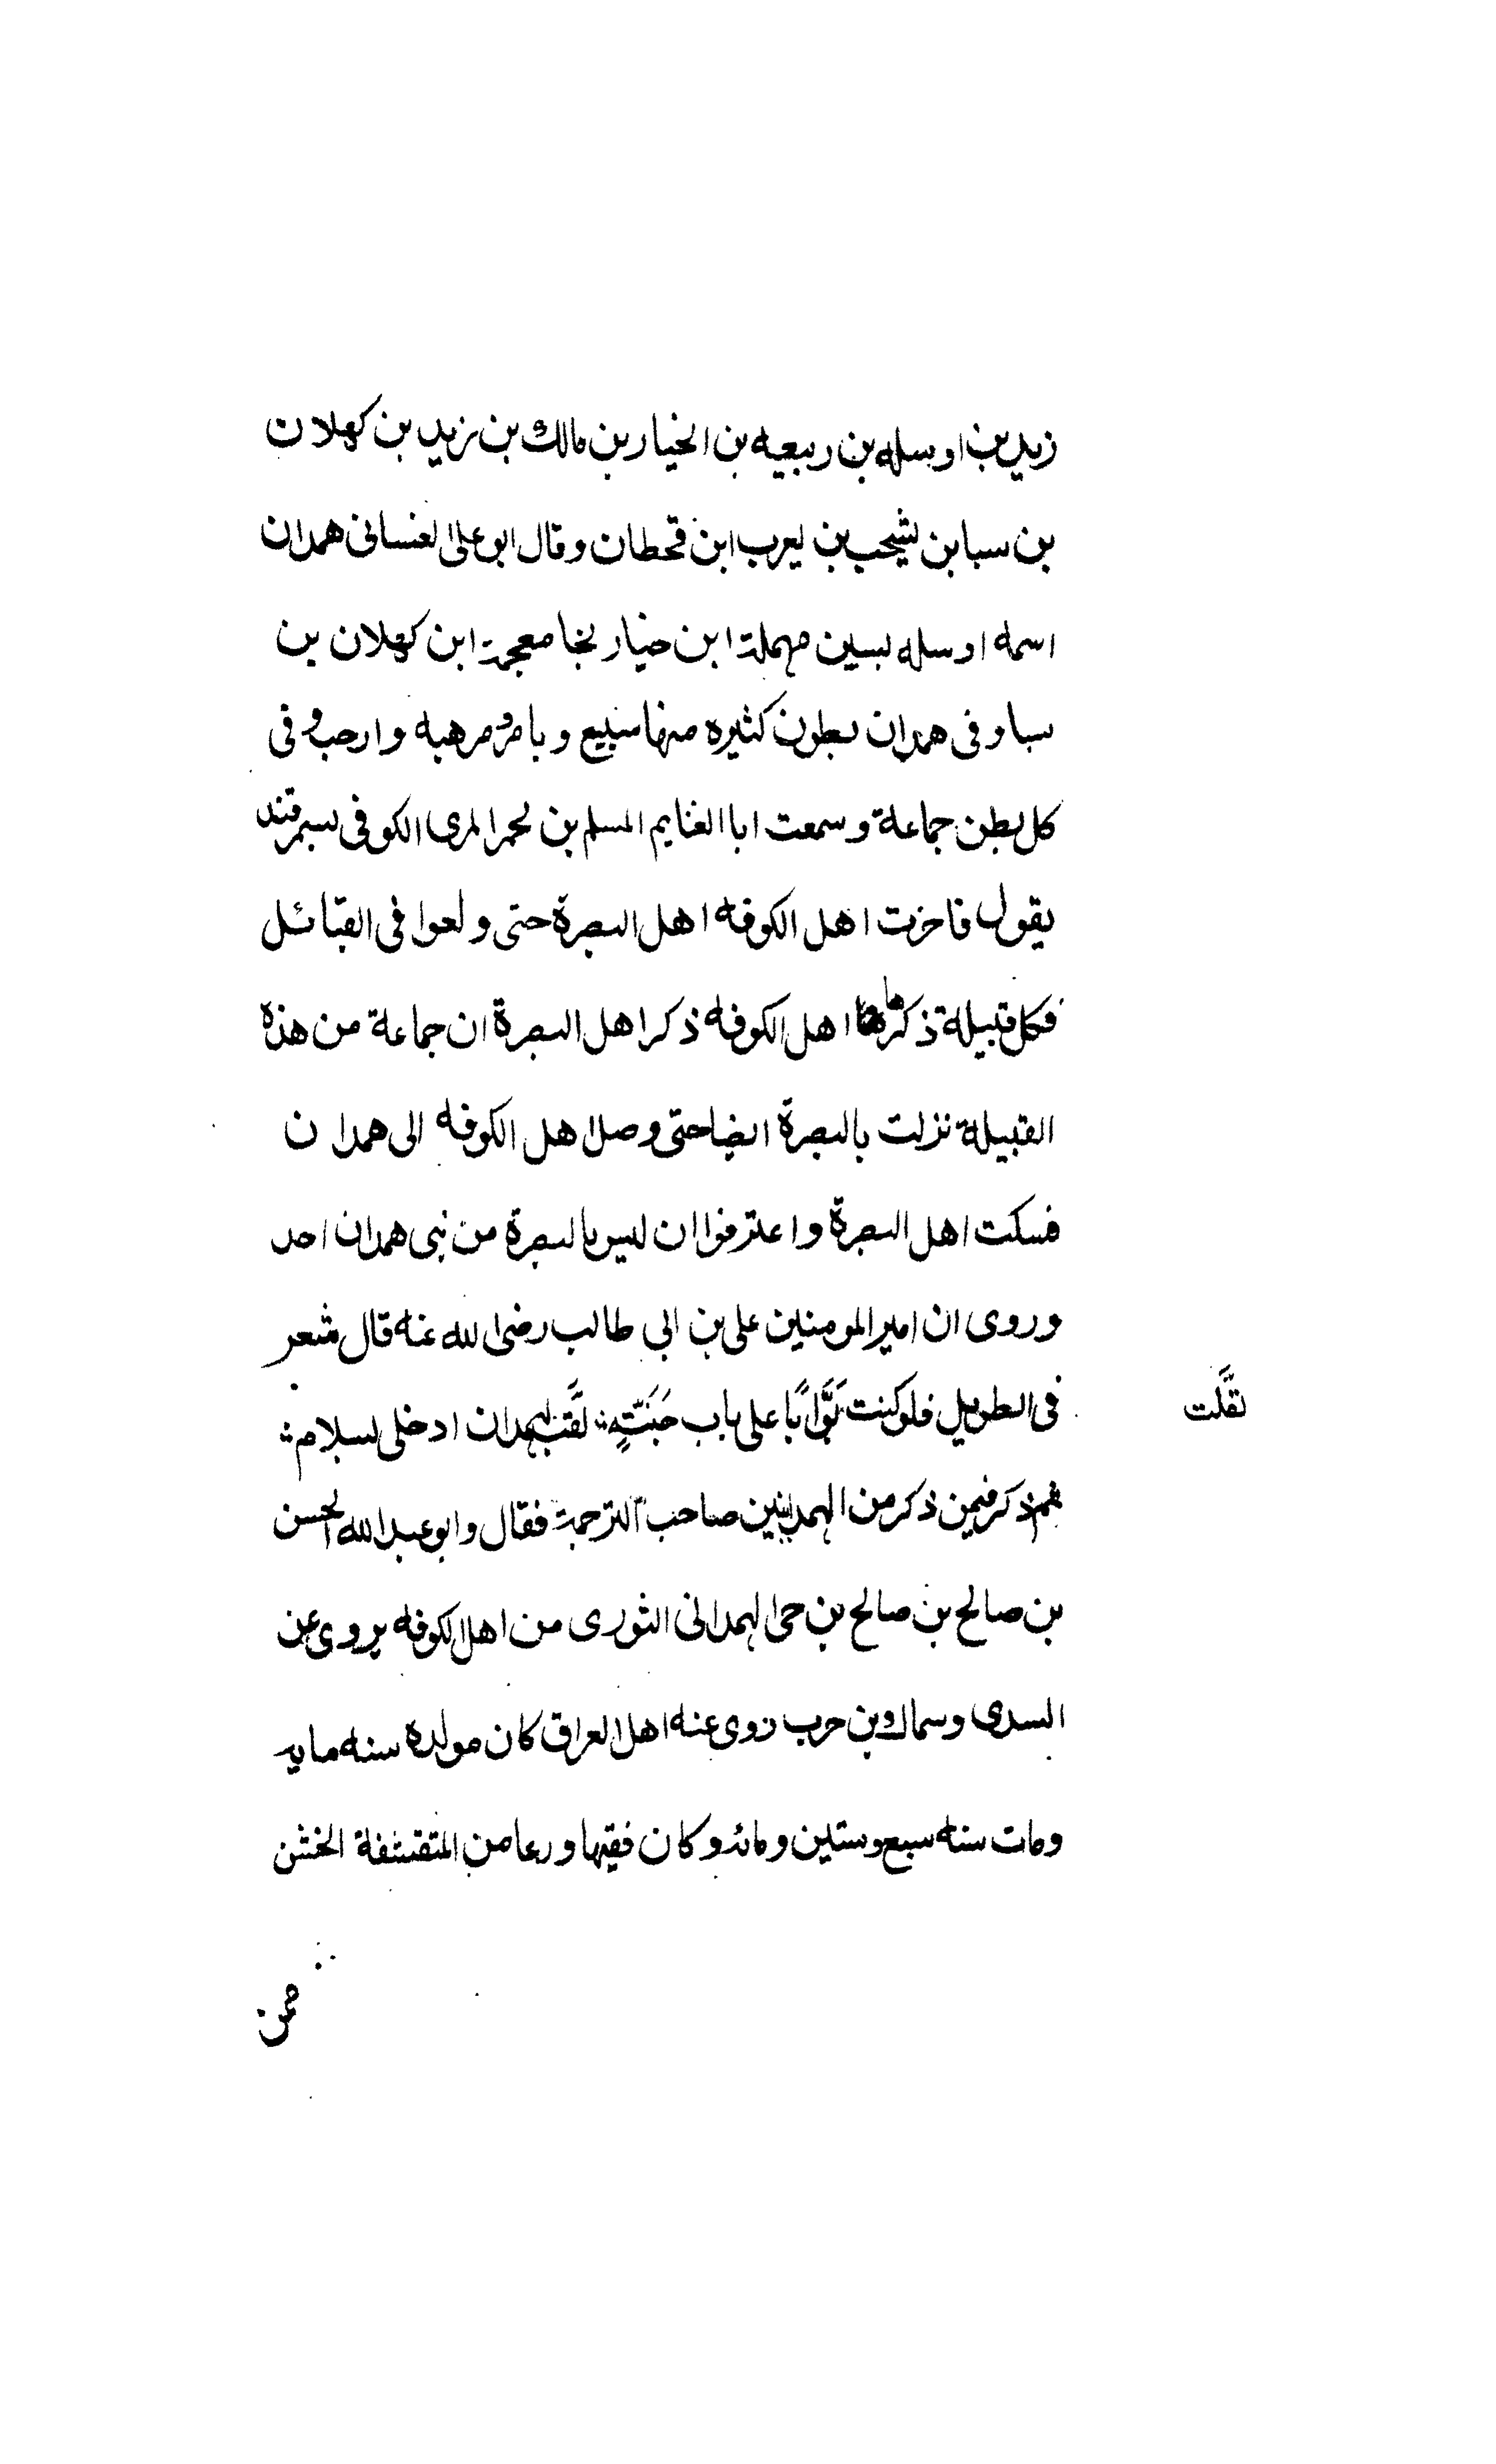 زيد بن اوسله بن ربيعه بن الخيار بن مالك بن زيد بن كهلان
بن سبا بن يشجب بن يعرب ابن قحطان وقال ابو على الغسانى همدان
اسمه اوسله بسين مهملة ابن خيار بخا معجمة ابن كهلان بن
سبا وفى همدان بطون كثيره منها سبيع ويام ومرهبه وارحب وفى
كل بطن جماعة وسمعت ابا الغنايم المسلم بن الكوفى بسمرقند
يقول فاخرت اهل الكوفه اهل البصرة حتى ولعوا فى القبائل
فكل قبيلة ذكرها اهل الكوفه ذكر اهل البصرة ان جماعة من هذه
القبيلة نزلت بالبصرة ايضا حتى وصل اهل الكوفه الى همدان
فسكت اهل البصرة واعترفوا ان ليس بالبصرة من بنى همدان احد
وروى ان امير المومنين على بن ابى طالب رضى الله عنه قال شعر
فى الطويل فلو كنت بَوَّابًا على باب جَنَّتٍه لقلت لهمدان ادخلى بسلام
لقَّلت
ثم ذكر فيمن ذكر من الهمدانيين صاحب الترجمة فقال وابو عبد الله الحسن
بن صالح بن صالح بن حى الهمدانى الثورى من اهل الكوفه يروى عن
السدى وسماك بن حرب روى عنه اهل العراق كان مولده سنه مايه
ومات سنه سبع وستين ومائه وكان فقيها ورعا من المتقشفة الخشن
ممن